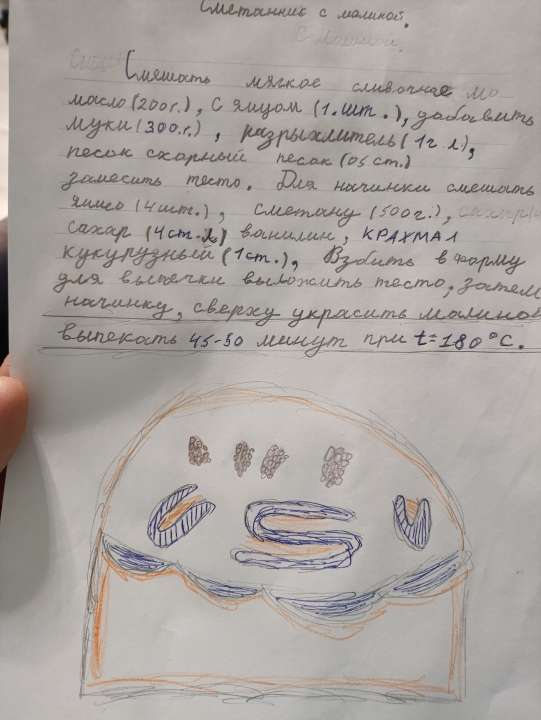 Сметанник с малиной.
с малиной.
Смешать мягкое сливочнае мо
масло (200г.), с яицом (1.шт.), дабавить
муки (300.г.), разрыхлитель (1г л),
песок схарный песак (05 ст.)
замесить тесто. Для начинки смешать
яицо (4шт.), сметану (500г.), сахар
сахар (4ст.л) ванилин, КРАХМАЛ
кукурузный (1ст.), Взбить в форму
для выпечки выложить тесто, затем
начинку, сверху украсить малиной
выпекать 45-50 минут при t=180°С.